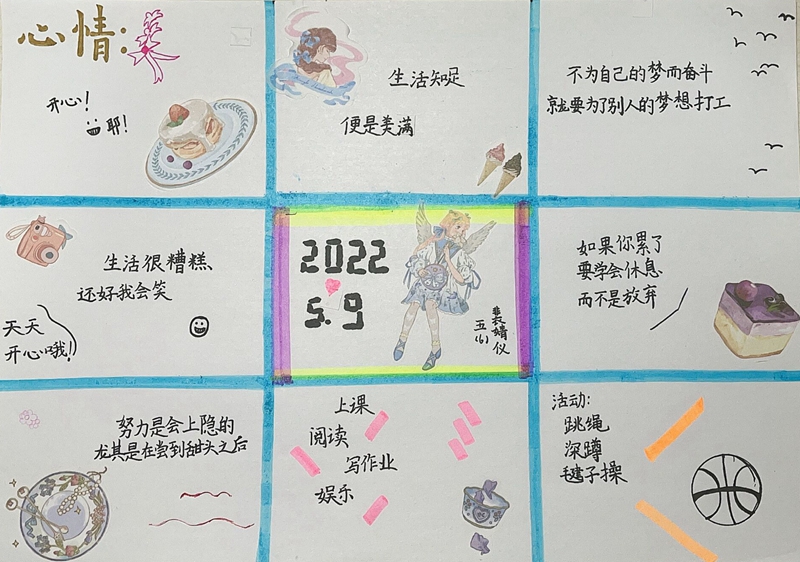 心情:
开心!
耶!
生活知足
便是美满
不为自己的梦而奋斗
京就要为了别人的梦想打工
生活很糟糕
还好我会笑
天天
开心哦!
2022
5.9
裴婧仪
五(6)
如果你累了
要学会休息
而不是放弃
努力是会上隐的
尤其是在尝到甜头之后
上课
阅读
写作业
娱乐
活动:
跳绳
深蹲
毽子操